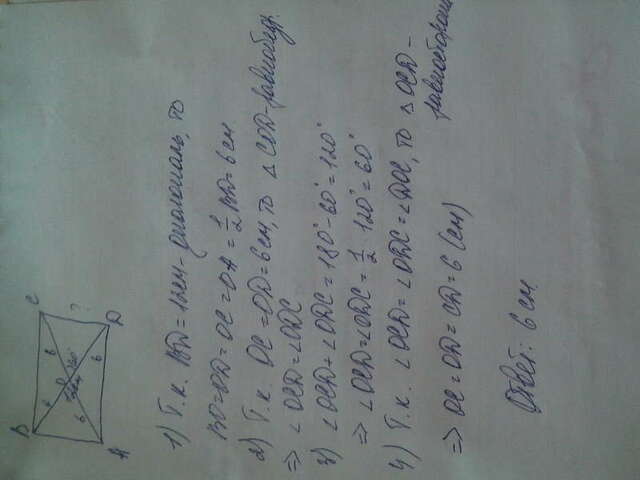 B
C
O
6
6
6
6
60°
?
A
D
1) Т.к. BD = 12см - диагональ, то
BO=OD=OC=OA=1/2 BD=6см.
2) Т.к. OC=OD=6см, то △COD-равнобедр.
=> ∠OCD=∠ODC
3) ∠OCD+∠ODC=180°-60°=120°
=> ∠OCD=∠ODC=1/2 120°=60°
4) Т.к. ∠OCD=∠ODC=∠DOC, то △OCD -
равносторон
=> OC=OD=CD=6 (см)
Ответ: 6 см